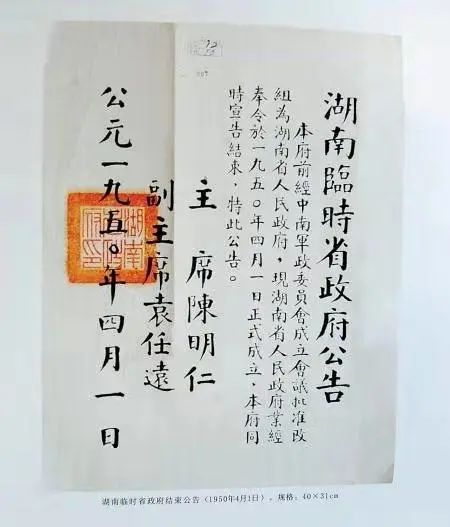 湖南臨時省政府公告
本府前經中南軍政委員會成立會議批准改
組為湖南省人民政府，現湖南省人民政府業經
奉令於一九五〇年四月一日正式成立，本府同
時宣告結束，特此公告。
主席陳明仁
副主席袁任遠
公元一九五〇年四月一日
湖南临时省政府结束公告（1950年4月1日），规格：40×31cm